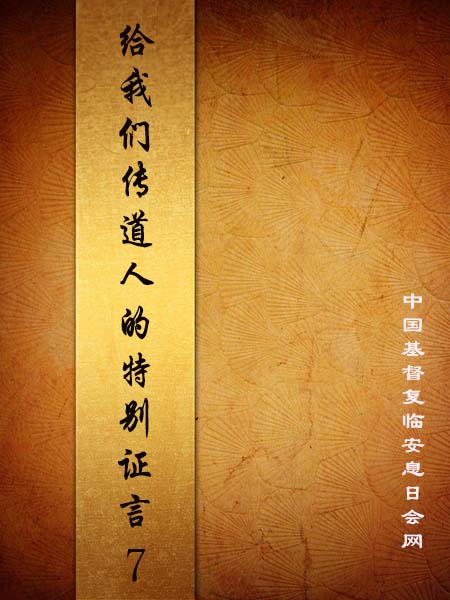 给我们传道人的特别证言7
中国基督复临安息日会网